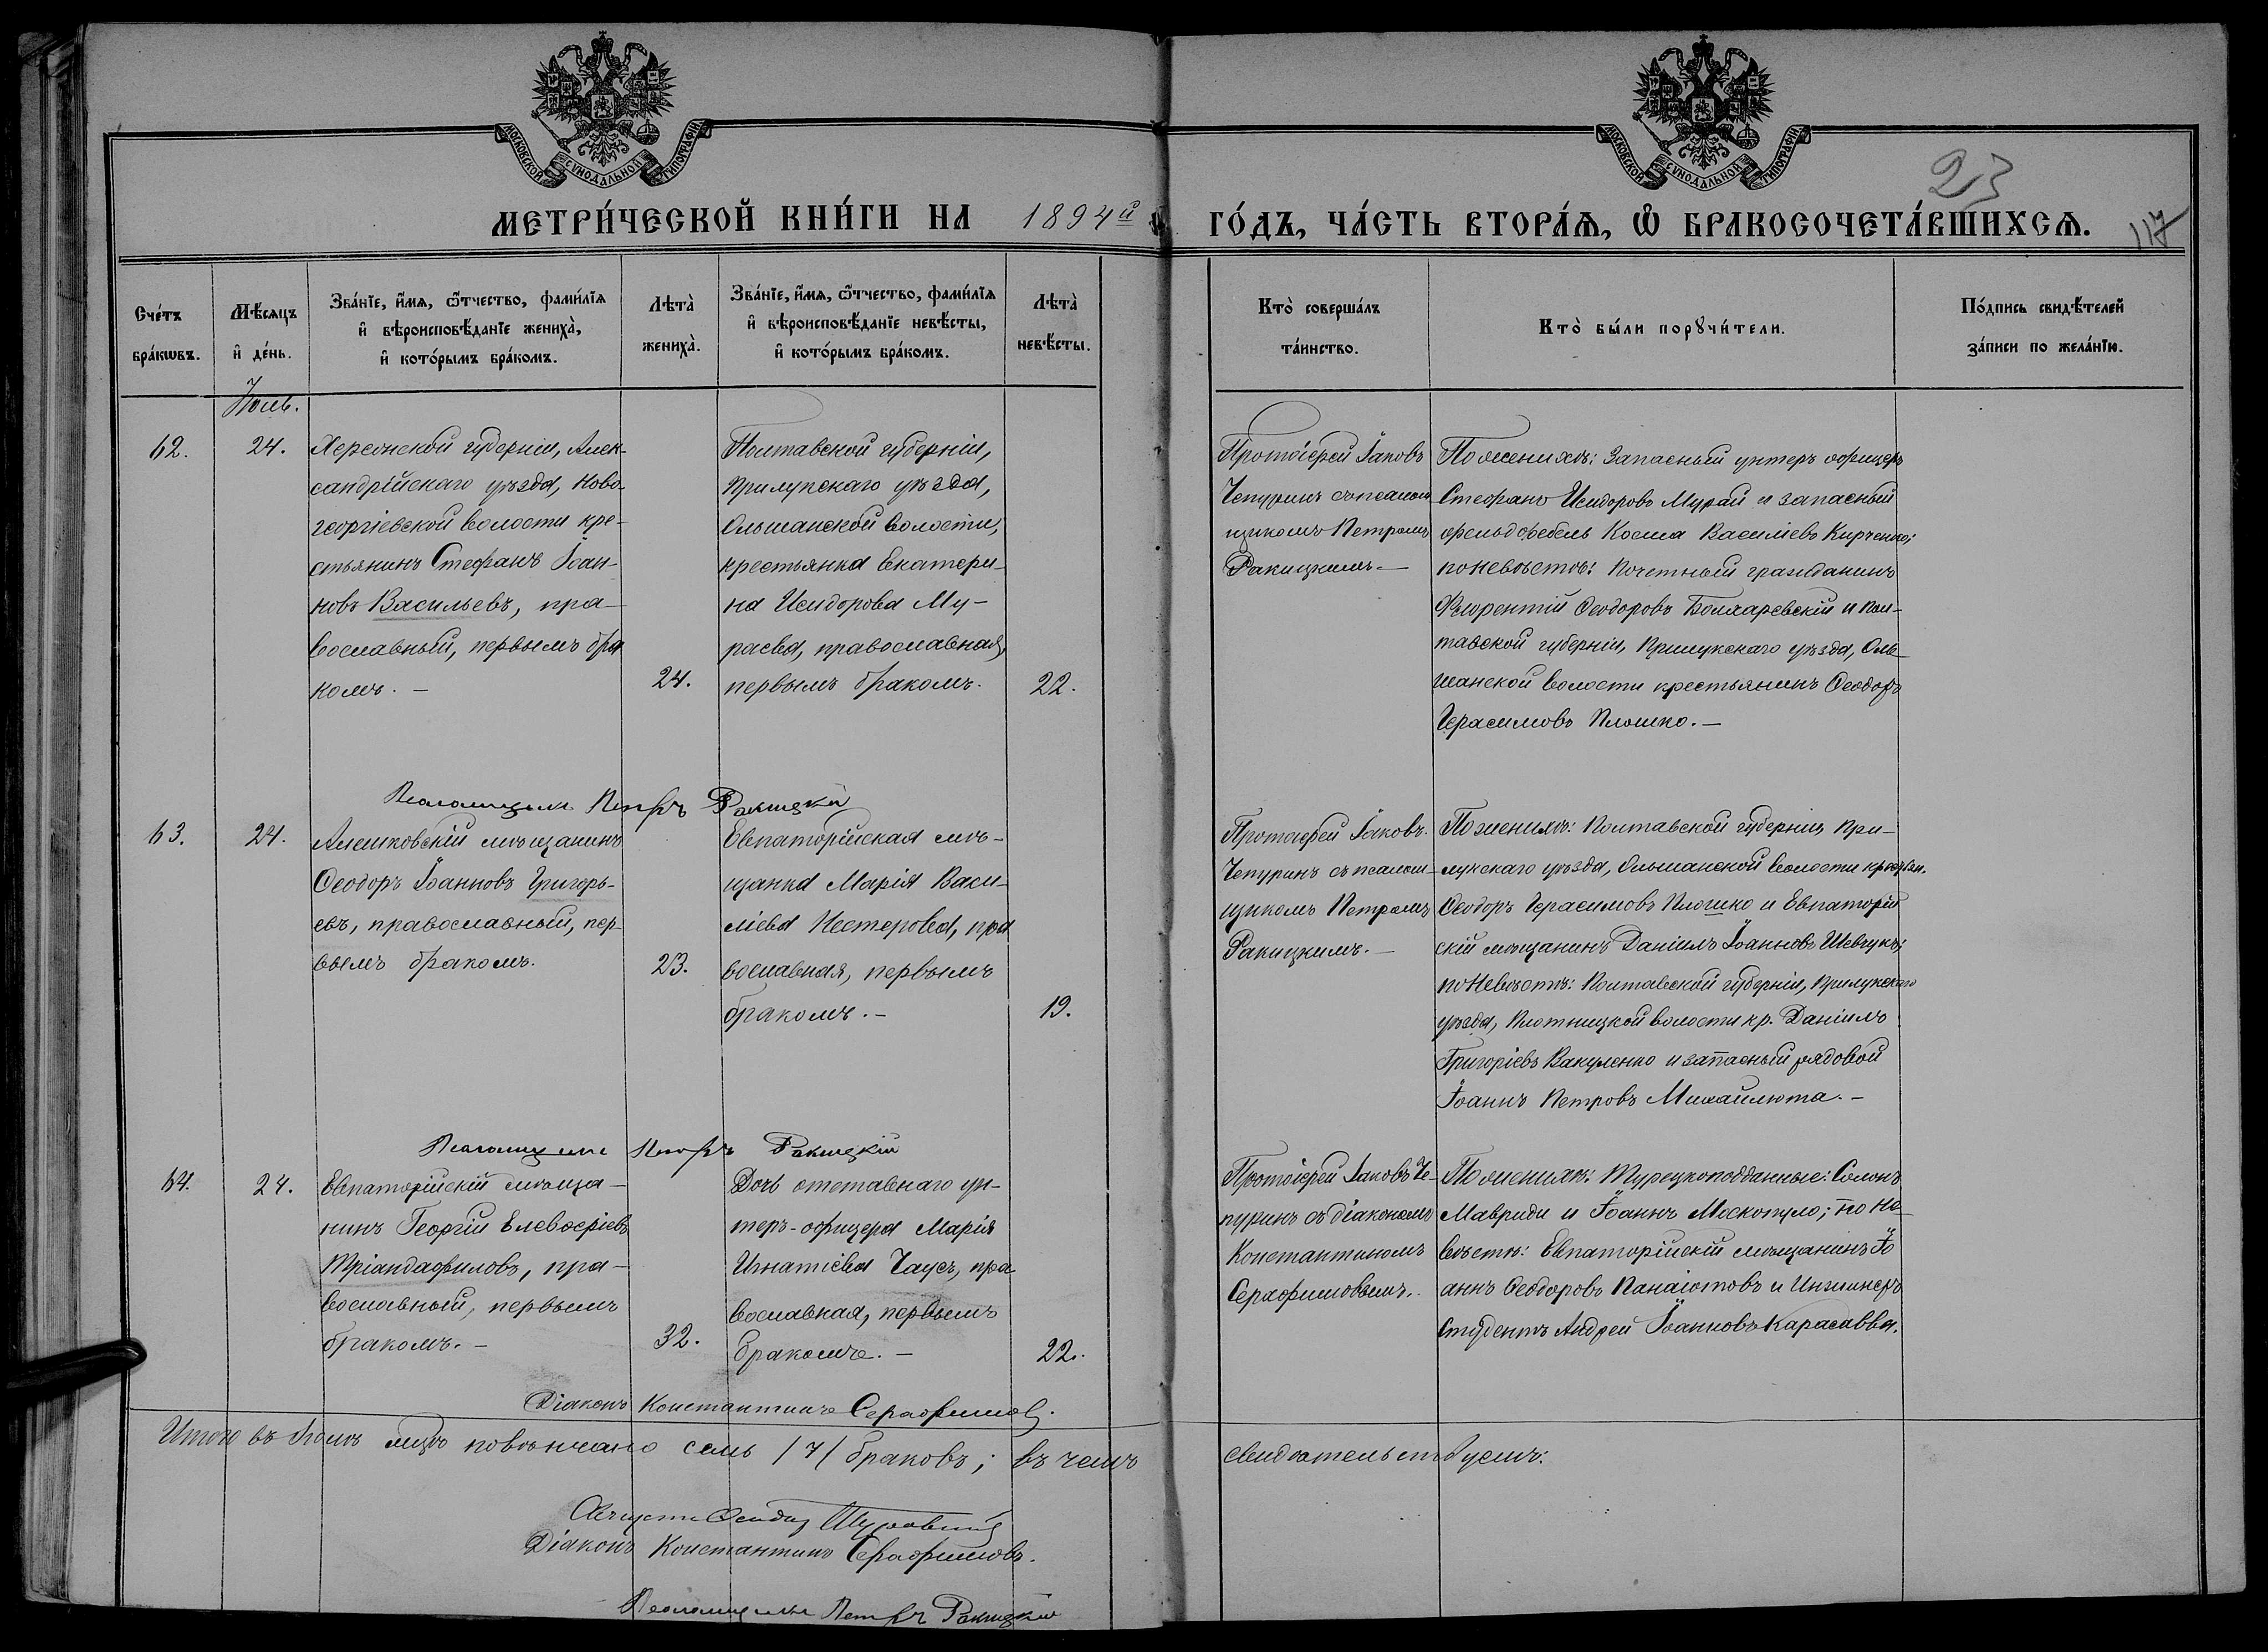 МОСКОВСКОЙ СѴНОДАЛЬНОЙ ТИПОГРАФІИ
МОСКОВСКОЙ СѴНОДАЛЬНОЙ ТИПОГРАФІИ
23
МЕТРИ́ЧЕСКОЙ КНИ́ГИ НА 1894й ГО́ДЪ, ЧА́СТЬ ВТОРА́Ѧ, Ѽ БРАКОСОЧЕТА́ВШИХСѦ.
117
Сче́тъ
бра́кѡвъ.
Мѣ́сѧцъ
и҆ де́нь.
Зва́нїе, и҆́мѧ, ѻ҆́тчество, фами́лїѧ
и҆ вѣроисповѣ́данїе жениха̀,
и҆ кото́рымъ бра́комъ.
Лѣта̀
жениха̀.
Зва́нїе, и҆́мѧ, ѻ҆́тчество, фами́лїѧ
и҆ вѣроисповѣ́данїе невѣ́сты,
и҆ кото́рымъ бра́комъ.
Лѣта̀
невѣ́сты.
Кто̀ соверша́лъ
та́инство.
Кто̀ бы́ли порꙋчи́тели.
По́дпись свидѣ́телей
за́писи по жела́нїю.
62.
24.
Херсонской губерніи, Алек-
сандрійскаго уѣзда, Ново-
георгіевской волости кре-
стьянинъ Стефанъ Іоан-
новъ Васильевъ, пра-
вославный, первымъ бра
комъ. -
24.
Полтавской губерніи,
Прилукскаго уѣзда,
Ольшанской волости,
крестьянка Екатери-
на Исидорова Му-
раева, православная,
первымъ бракомъ.
22.
Протоіерей Іаковъ
Чепуринъ съ псаломщ
щикомъ Петромъ
Ракицкимъ. -
По женихѣ: Запасный унтеръ офицеръ
Стефанъ Исидоровъ Мурай и запасный
фельдфебель Косма Василіевъ Кирченко;
по невѣстѣ: Почетный гражданинъ
Флорентій Ѳеодоровъ и Пол-
тавской губерніи, Прилукскаго уѣзда, Оль-
шанской волости крестьянинъ Ѳеодоръ
Герасимовъ Плошко. -
Псаломщикъ Петръ Ракицкій
63.
24.
Алешковскій мѣщанинъ
Ѳеодоръ Іоанновъ Григорь-
евъ, православный, пер-
вымъ бракомъ.
23.
Евпаторійская мѣ-
щанка Марія Васи-
ліева Нестерова, пра
вославная, первымъ
бракомъ. -
19.
Протоіерей Іаковъ
Чепуринъ съ псалом-
щикомъ Петромъ
Ракицкимъ. -
По женихѣ: Полтавской губерніи При-
лукскаго уѣзда, Ольшанской волости крестьян.
Ѳеодоръ Герасимовъ Плошко и Евпаторій
скій мѣщанинъ Даніилъ Іоанновъ Шевчукъ;
по невѣстѣ: Полтавской губерніи, Прилукскаго
уѣзда, волости кр. Даніилъ
Григоріевъ Вакуленко и запасный рядовой
Іоаннъ Петровъ Михайлюта. -
Псаломщикъ Петръ Ракицкій
64.
24.
Евпаторійскій мѣща-
нинъ Георгій Елевѳеріевъ
Тріандафиловъ, пра-
вославный, первымъ
бракомъ. -
32.
Дочь отставнаго ун-
теръ-офицера Марія
Игнатіева Чаусъ, пра
вославная, первымъ
бракомъ. -
22.
Протоіерей Іаковъ Че-
пуринъ съ діакономъ
Константиномъ
Серафимовымъ.
По женихѣ: Турецкоподданные: Солонъ
Мавриди и Іоаннъ Москопуло; по не-
вѣстѣ: Евпаторійскій мѣщанинъ Іо
аннъ Ѳеодоровъ Панаіотовъ и Инженеръ
Студентъ Андрей Іоанновъ Карасавва.
Діаконъ Константинъ Серафимовъ.
Итого въ повѣнчано семь /7/ браковъ; въ чемъ свидѣтельствуемъ:
Діаконъ Константинъ Серафимовъ.
Псаломщикъ Петръ Ракицкій